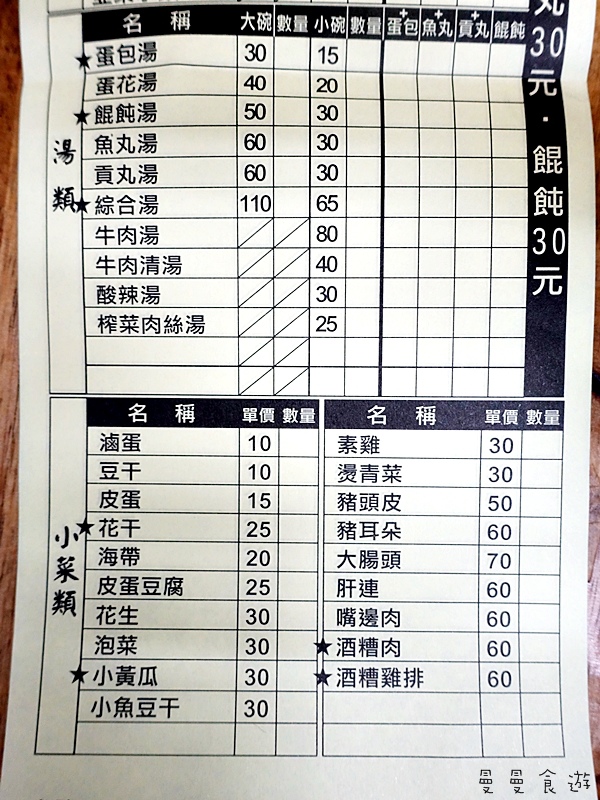 名 稱 大碗 數量 小碗 數量 +蛋包 +魚丸 +貢丸 餛飩
湯類
★蛋包湯 30 15
蛋花湯 40 20
★餛飩湯 50 30
魚丸湯 60 30
貢丸湯 60 30
★綜合湯 110 65
牛肉湯 80
牛肉清湯 40
酸辣湯 30
榨菜肉絲湯 25
丸30元·餛飩30元
小菜類
名 稱 單價 數量
滷蛋 10
豆干 10
皮蛋 15
★花干 25
海帶 20
皮蛋豆腐 25
花生 30
泡菜 30
★小黃瓜 30
小魚豆干 30
名 稱 單價 數量
素雞 30
燙青菜 30
豬頭皮 50
豬耳朵 60
大腸頭 70
肝連 60
嘴邊肉 60
★酒糟肉 60
★酒糟雞排 60
曼曼食遊